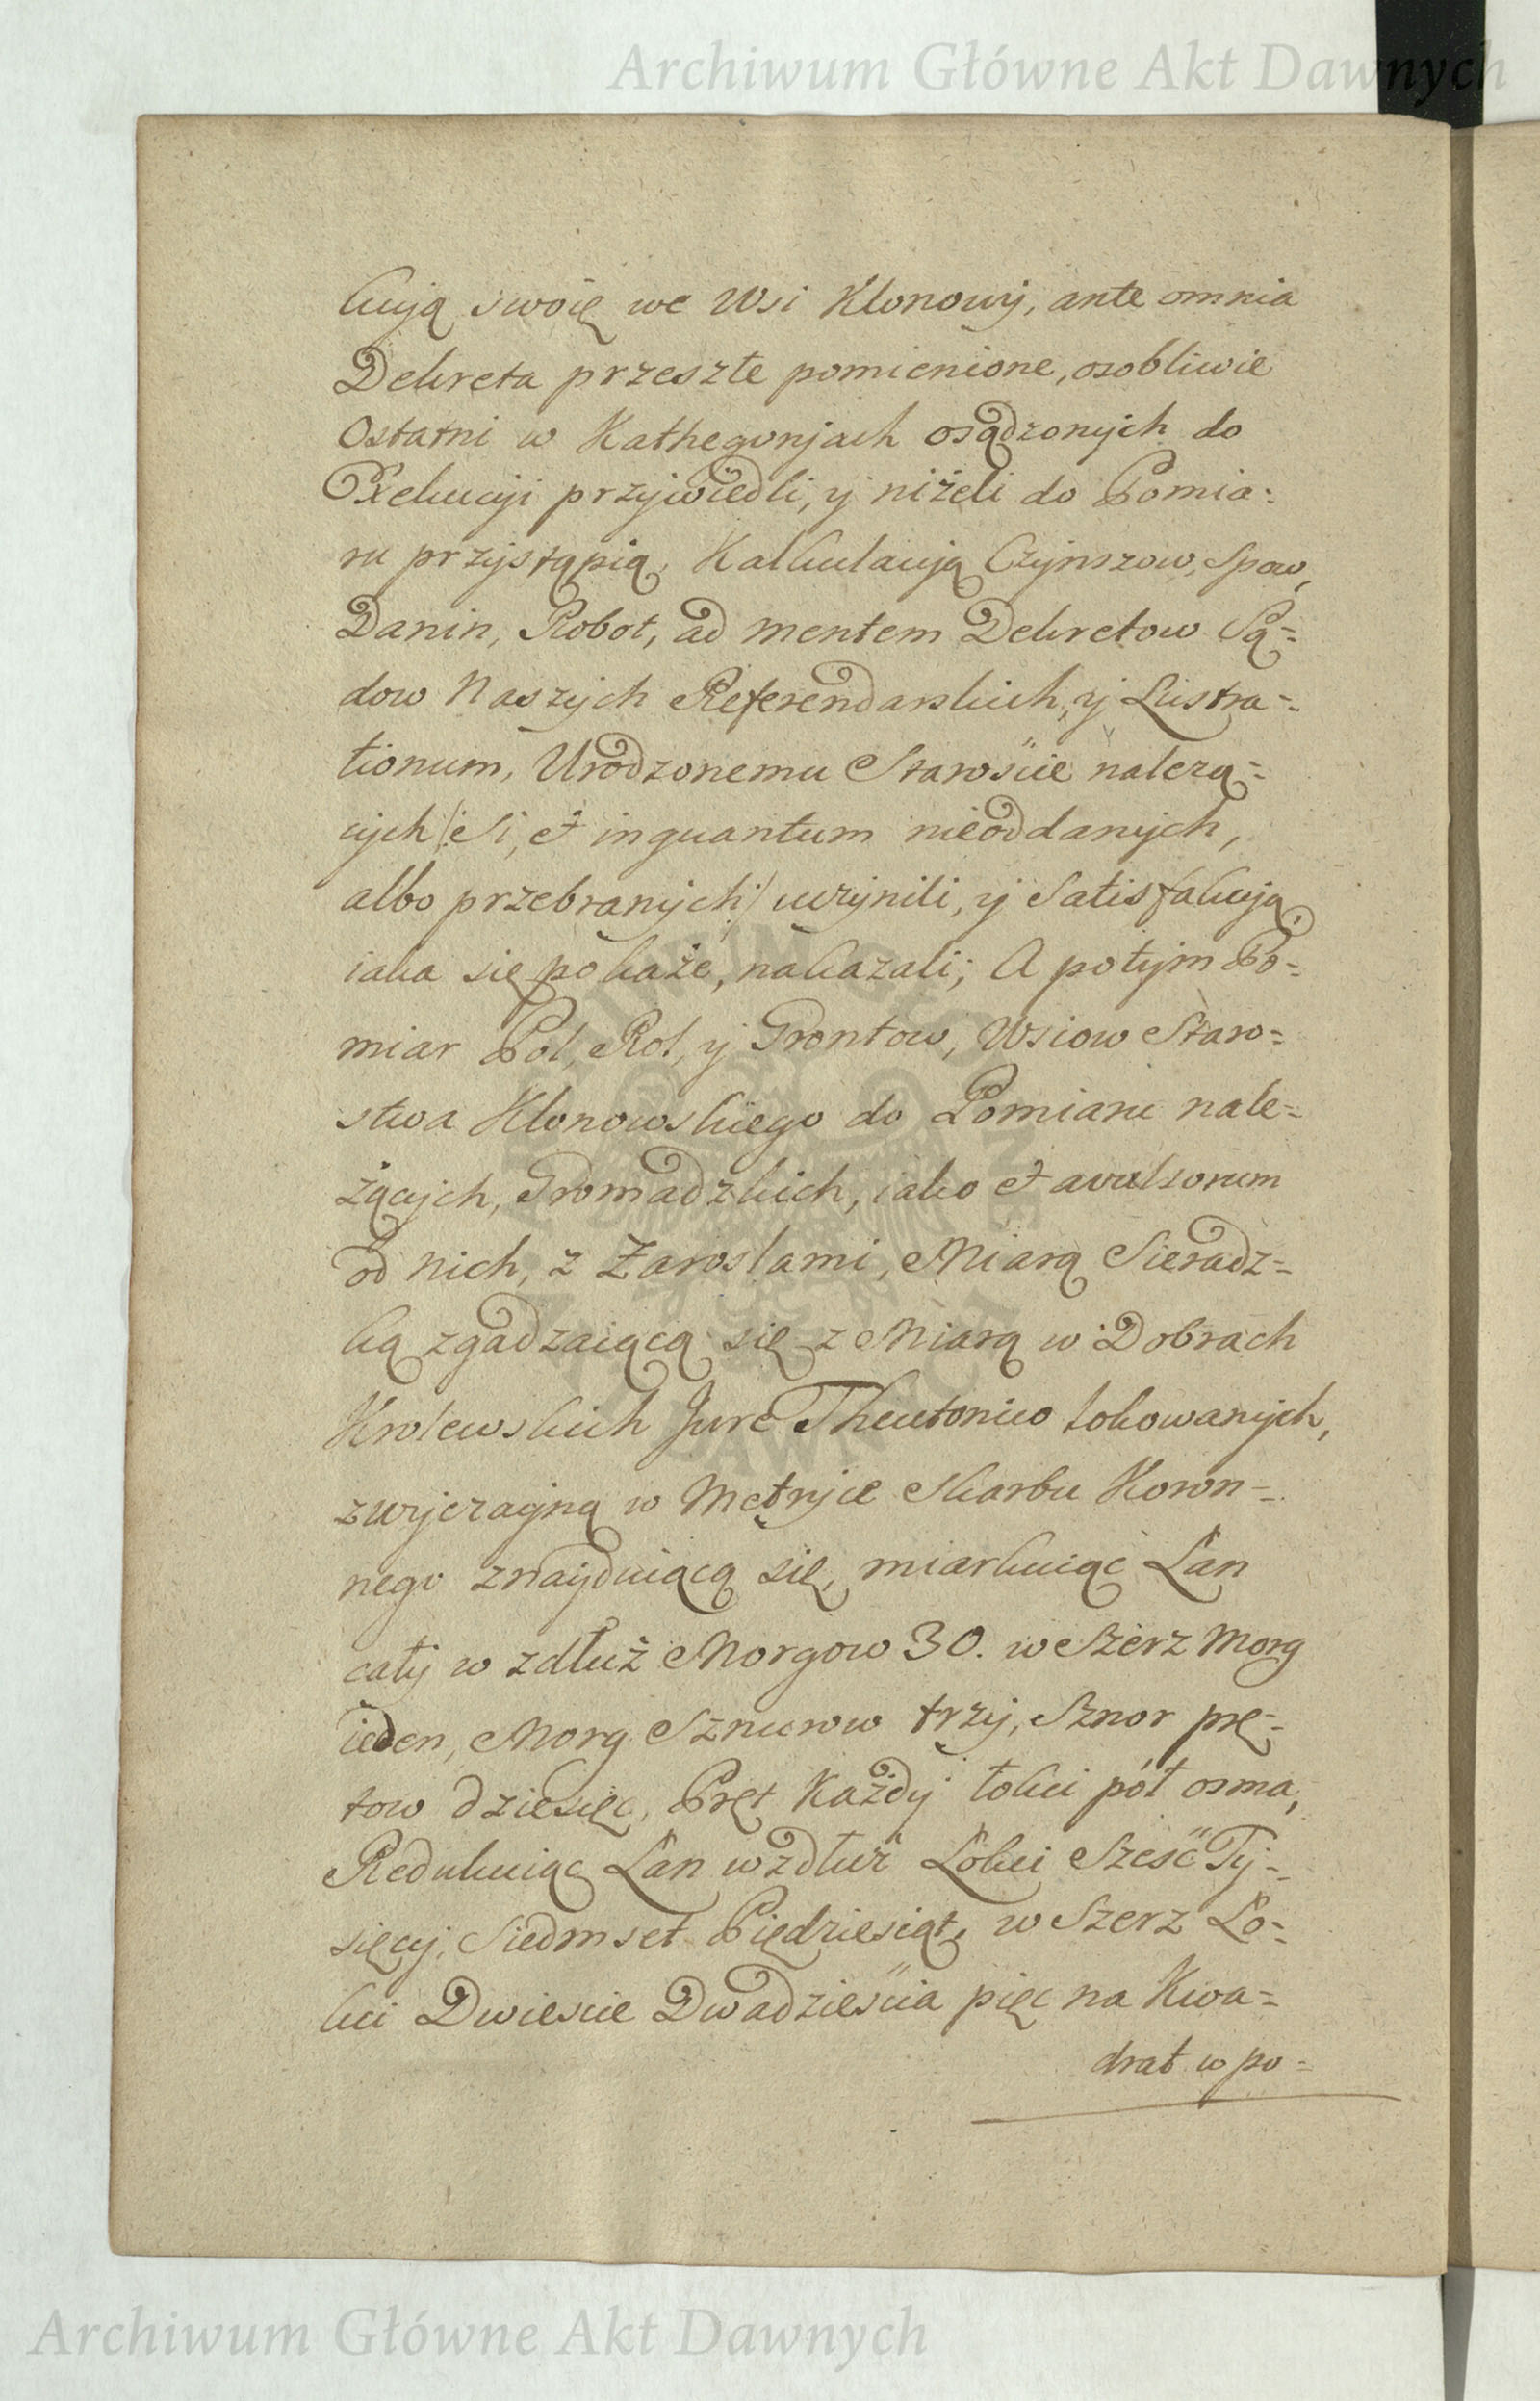 Archiwum Główne Akt Dawnych
kcyją swoię we Wsi Klonowy, ante omnia
Dekreta przeszłe pomienione, osobliwie
Ostatni w Kathegoryach osądzonych do
Exekucyi przywiedli, y niżeli do Pomia:
ru przystąpią, Kalkulacyją Czynszow, Spow,
Danin, Robot, ad mentem Dekretow Są=
dow Naszych Referendarskich, y Lustra=
tionum, Urodzonemu Starościę należą=
cych /: Si, et inquantum nieoddanych,
albo przebranych :/ uczynili, y Satisfakcyją,
iaka się pokaże, nakazali; A potym Po=
miar Pol, Rol, y Grontow, Wsiow Staro=
stwa Klonowskiego do Pomiaru nale=
żących, Gromadzkich, iako et avulsorum
od nich, z Zaroslami, Miarą Sieradz=
ką zgadzaiącą się z Miarą w Dobrach
Krolewskich Jure Theutonico lokowanych,
zwyczayną w Metryce Skarbu Koron=
nego znayduiącą się, miarkuiąc Łan
cały w zdłuż Morgow 30. w Szerz Morg
ieden, Morg Sznurow trzy, Sznor prę=
tow dziesięc, Pręt Każdy łokci pół osma,
Redukuiąc Łan wzdłuż Łokci Sześć Ty=
sięcy, Siedmset Pięдziesiąt, w Szerz Ło=
kci Dwiescie Dwadzieścia pięc na Kwa=
drat w po=
Archiwum Główne Akt Dawnych